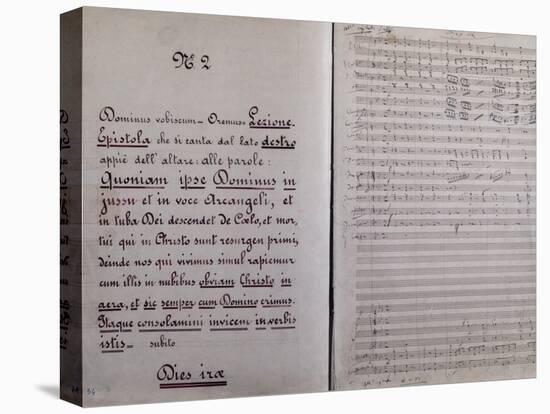 Nº 2
Dominus vobiscum - Oremus - Lezione
Epistola che si canta dal lato destro
appiè dell' altare: alle parole:
Quoniam ipse Dominus in
jussu et in voce Arcangeli, et
in tuba Dei descendet de Cœlo, et mor,
tui qui in Christo sunt resurgen primi,
deinde nos qui vivimus simul rapiemur
cum illis in nubibus obviam Christo in
aera, et sic semper cum Domino erimus.
Itaque consolamini invicem in verbis
istis - subito
Dies iræ